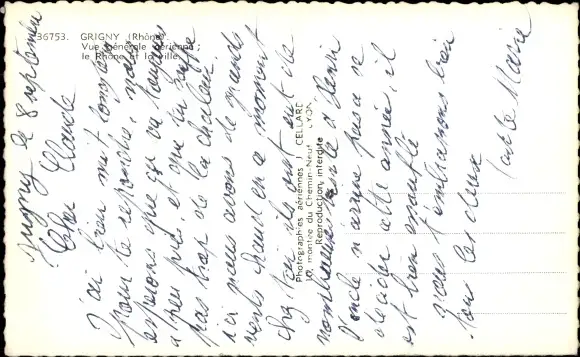 36753. GRIGNY (Rhône)
Vue générale aérienne ;
le Rhône et la ville
Photographies aériennes J. CELLARD
10, montée du Chemin-Neuf - LYON
Reproduction interdite
Grigny le 8 septembre
Chère Claude
J'ai bien mis longtemps
pour te répondre, nous
espérons que ça va toujours
à peu près, et que tu
pas trop de la chaleur.
ici nous avons de grands
vents chauds en ce moment
ils ont eut de
nombreuses
l'oncle n'arrive pas à se
décider cette année, il
est bien essoufflé
nous t'embrassons bien
tous les deux
tante Marie